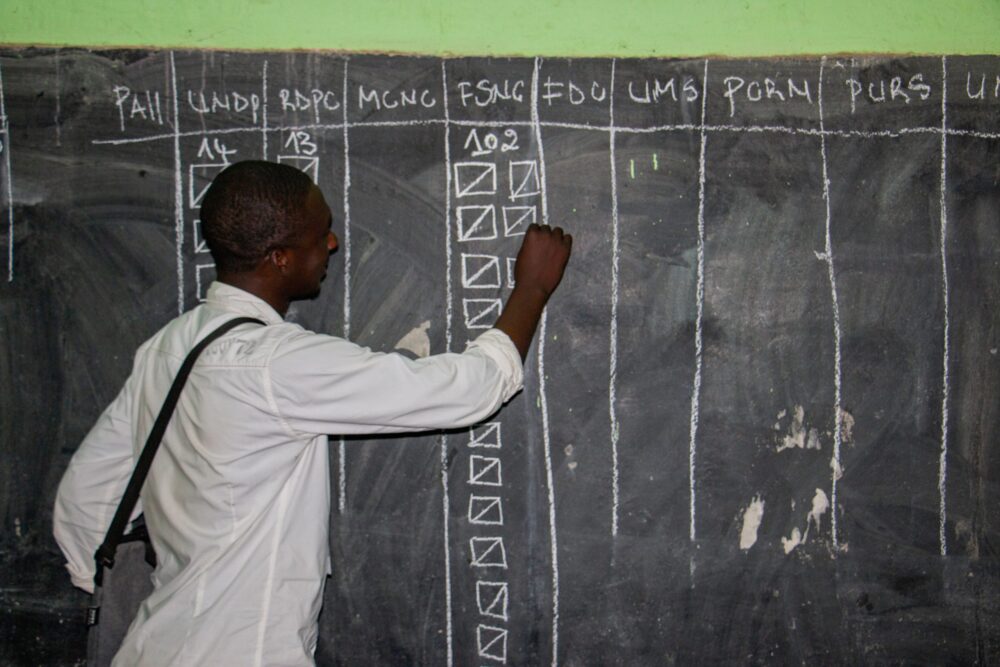 PAL UNDP RDPC MCNC FSNC FDC UMS PCRN PURS UN
14 13 102